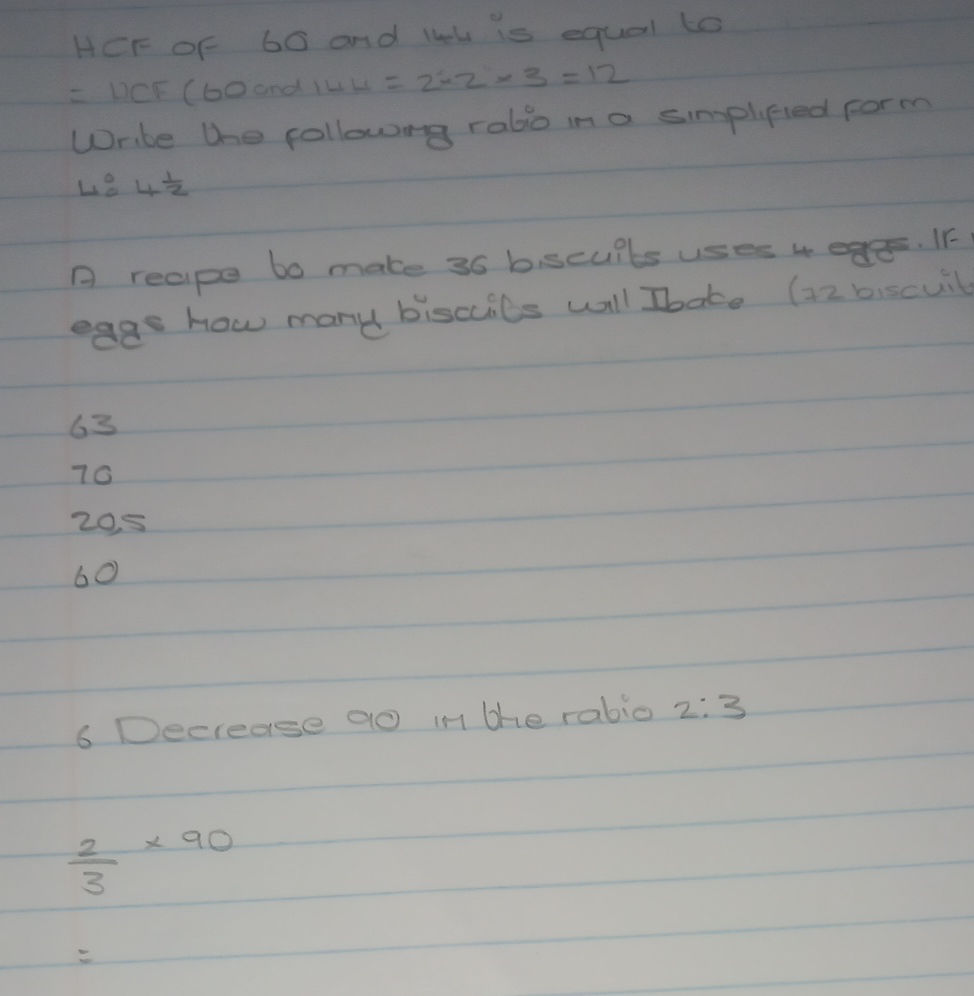 HCF OF 60 and 144 is equal to
= HCF (60 and 144 = 2×2×3 = 12
Write the following ratio in a simplified form
4: 4 1/2
A recipe to make 36 biscuits uses 4 eggs. IF
eggs how many biscuits will I bake (72 biscuits
63
70
20,5
60
6 Decrease 90 in the ratio 2:3
2/3 × 90
=